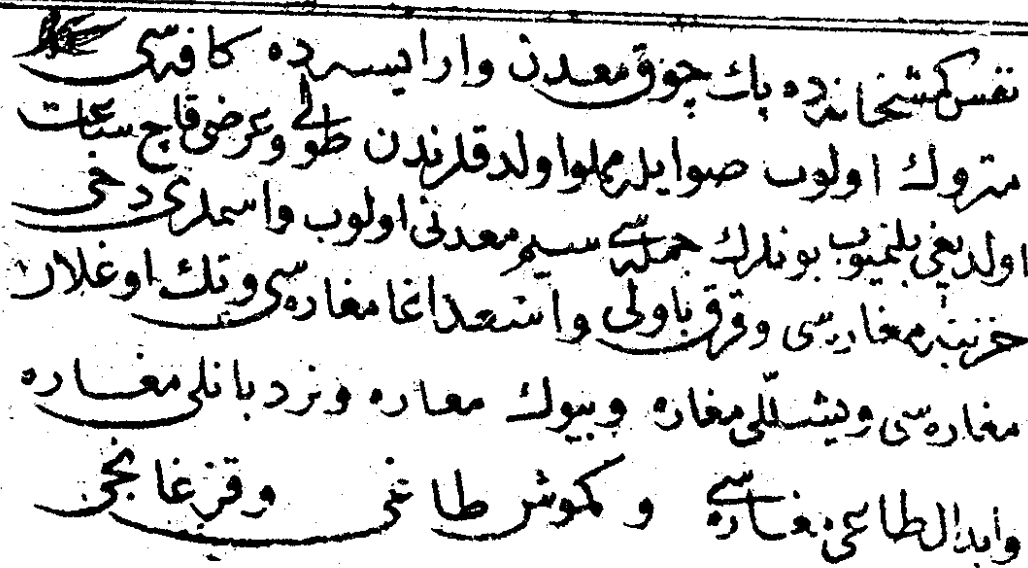 نفس كمشخانه ده پك چوق معدن وار ايسه ده كافه سى
متروك اولوب صو ايله مملو اولدقلرندن طولى وعرضى قاچ ساعت
اولديغى بلنميوب بونلرك جمله سى سيم معدنى اولوب واسملرى دخى
خزينه مغاره سى وقرق باولى واسعد اغا مغاره سى وتك اوغلان
مغاره سى ويشللى مغاره وبيوك مغاره ونردبانلى مغاره
وابدال طاغى مغاره سى وكموش طاغى وقزغانجى